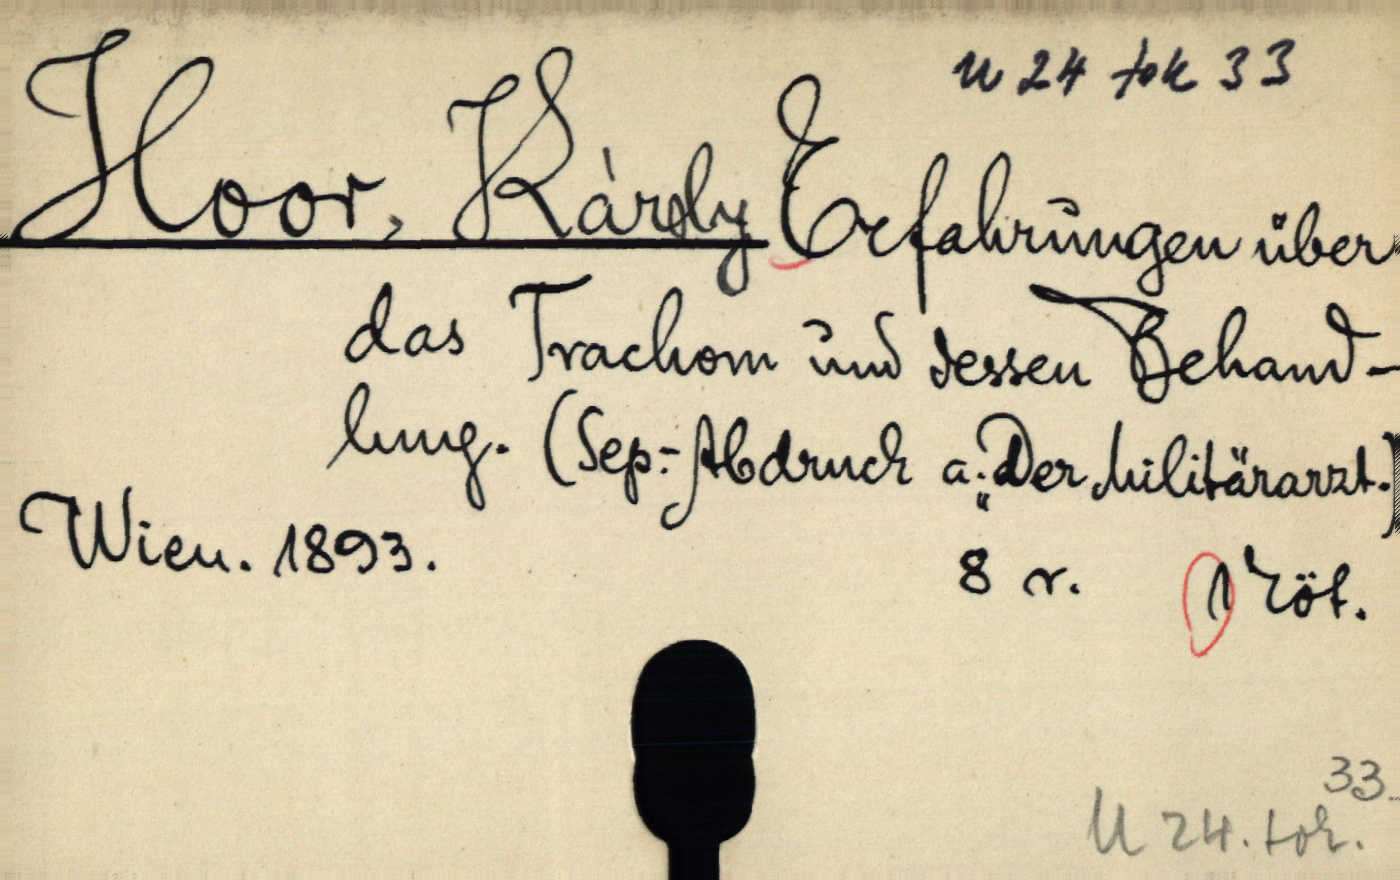 U 24 tok 33
Hoor, Károly Erfahrungen über
das Trachom und dessen Behand-
lung. (Sep.-Abdruck a. „Der Militärarzt.)
Wien. 1893. 8 r. 1 köt.
33.
U 24. tok.